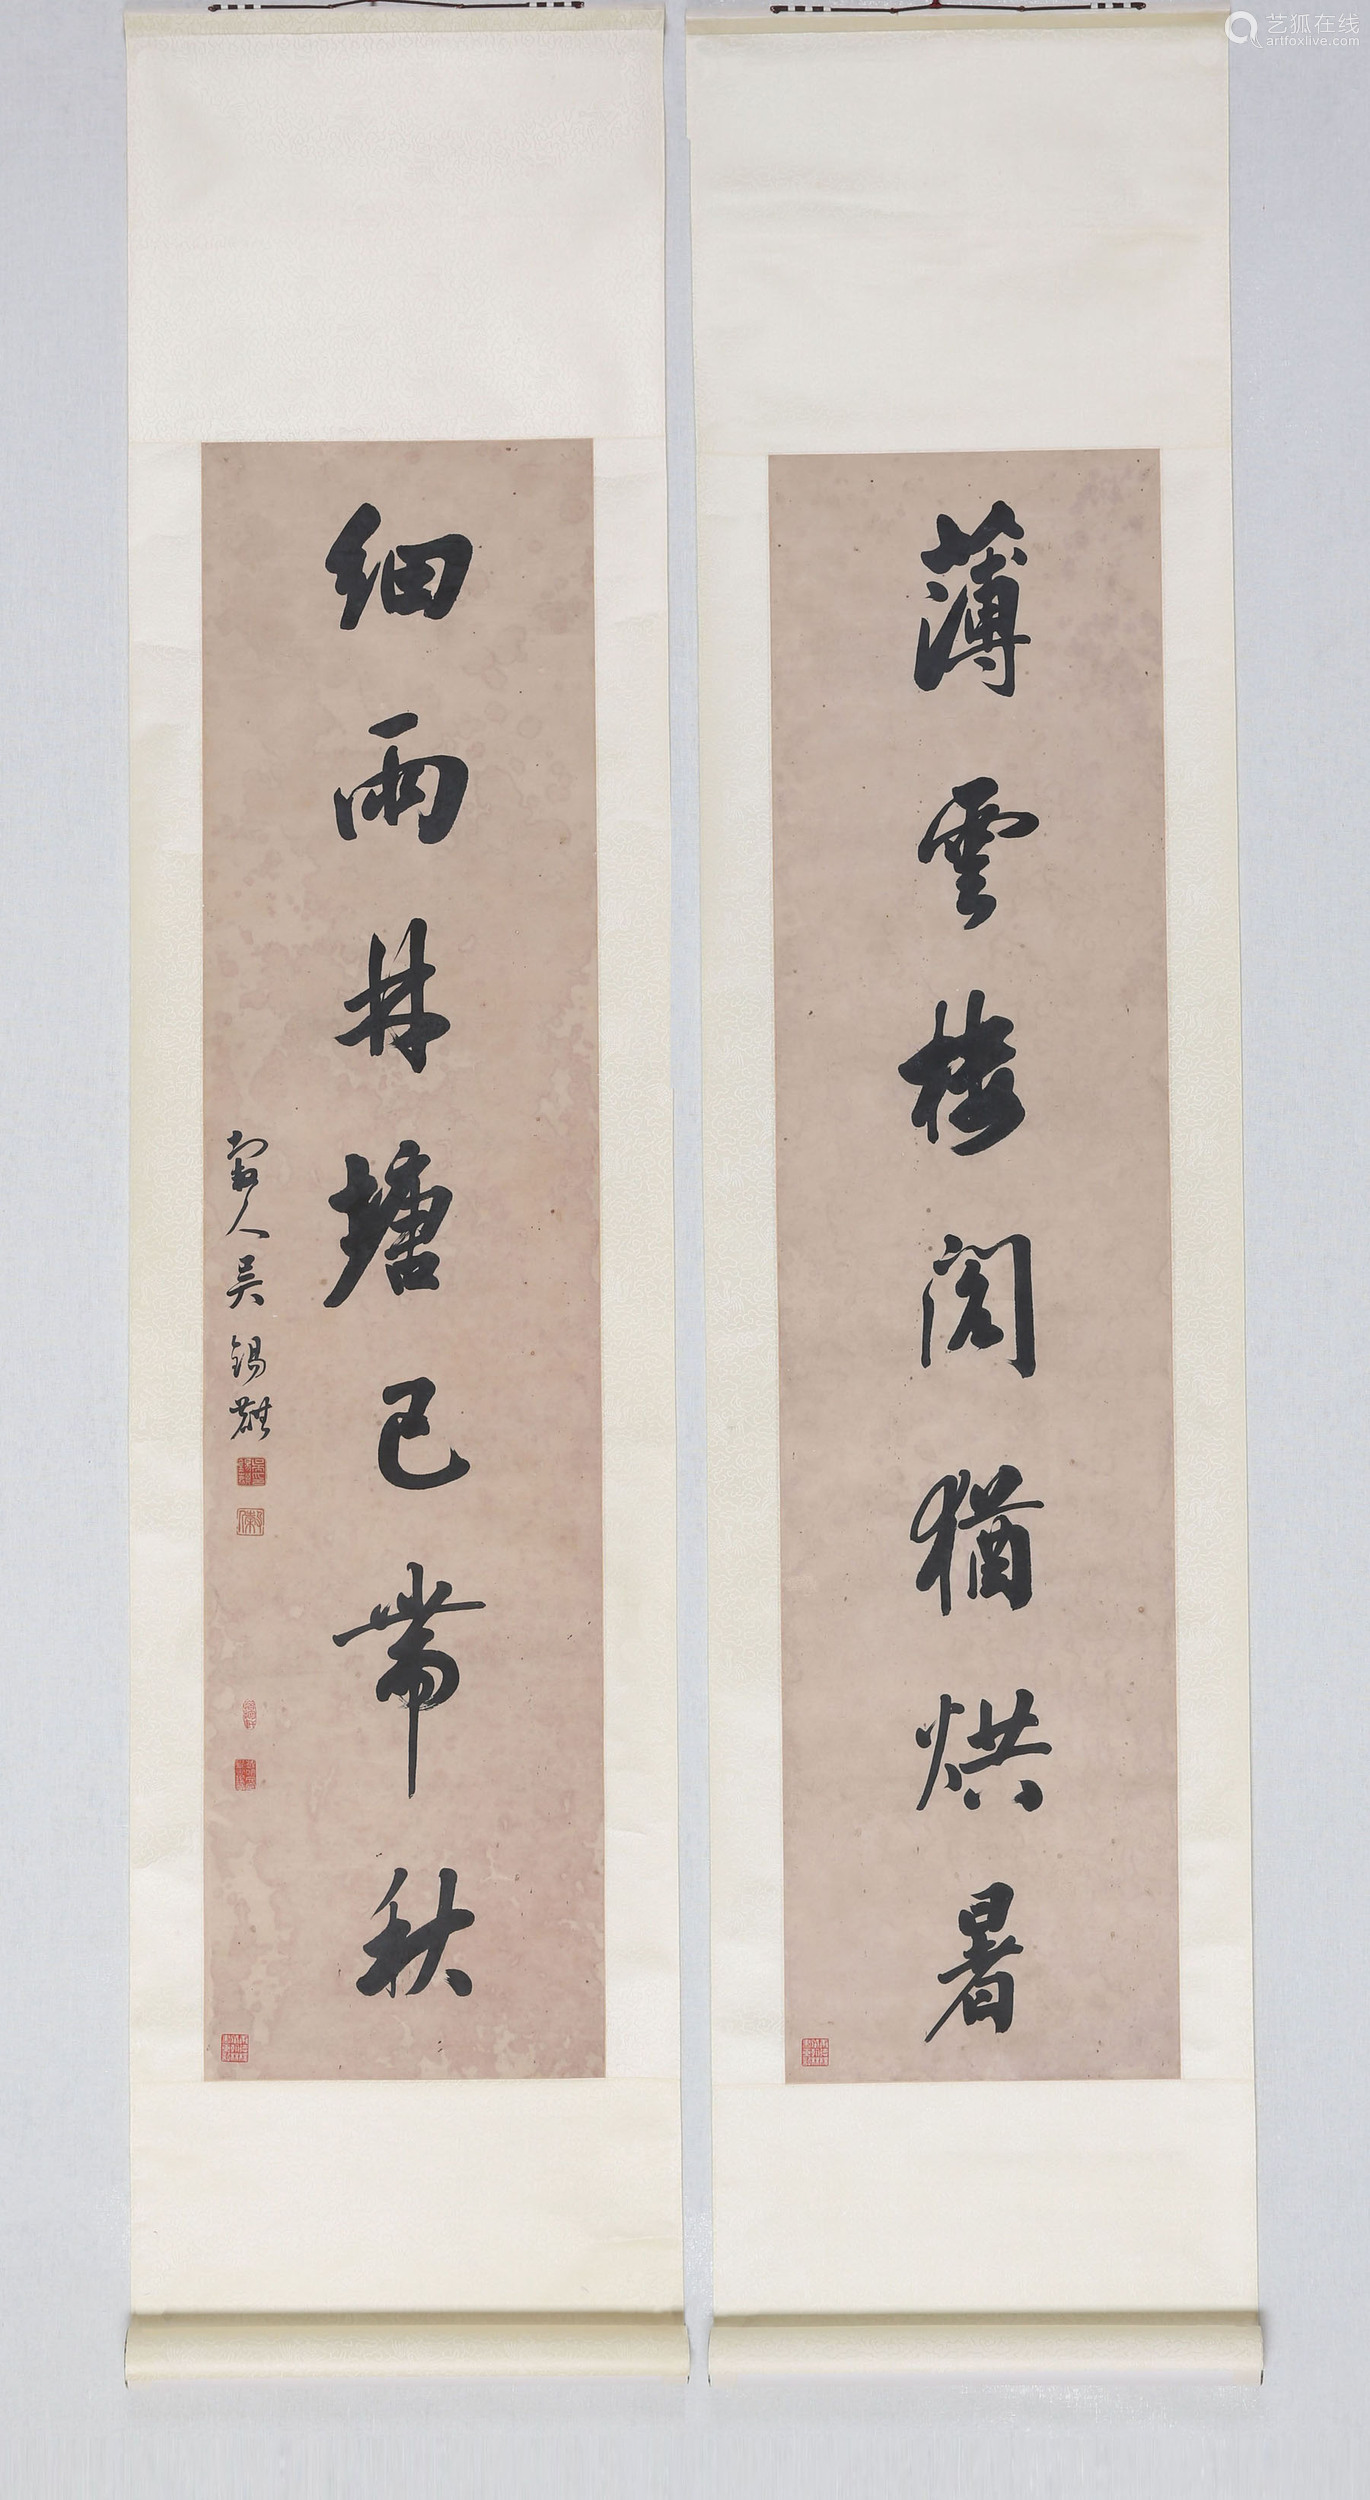 薄雲樓閣猶烘暑
細雨林塘已帶秋
穀人吳錫麒
艺狐在线
artfoxlive.com